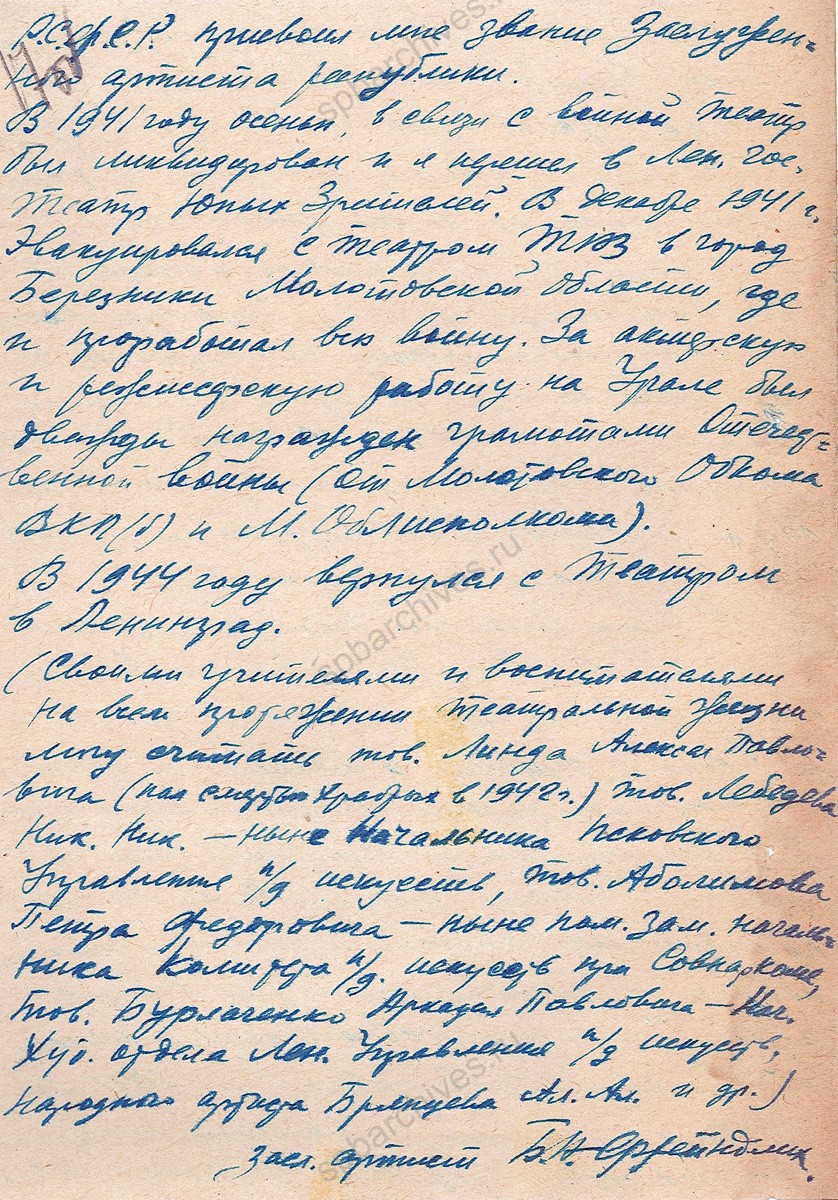 Р.С.Ф.С.Р. присвоил мне звание Заслужен-
ного артиста республики.
В 1941 году осенью, в связи с войной театр
был ликвидирован и я перешел в Лен. Гос.
Театр Юных Зрителей. В декабре 1941 г.
Эвакуировался с театром ТЮЗ в город
Березники Молотовской области, где
и проработал всю войну. За актерскую
и режиссерскую работу на Урале был
дважды награжден грамотами Отечест-
венной войны (от Молотовского Обкома
ВКП(б) и М. Облисполкома).
В 1944 году вернулся с театром
в Ленинград.
(Своими учителями и воспитателями
на всем протяжении театральной жизни
могу считать тов. Линда Алексея Павло-
вича (пал смертью храбрых в 1942 г.) тов. Лебедева
Ник. Ник. — ныне Начальника Псковского
Управления п/д искусств, тов. Аболимова
Петра Федоровича — ныне пом. зам. началь-
ника Комитета п/д. искусств при Совнаркоме,
тов. Бурлаченко Аркадия Павловича — Нач.
Худ. отдела Лен. Управления п/д искусств,
народного артиста Брянцева Ал. Ал. и др.)
Засл. артист Б. Н. Фрейндлих.
spbarchives.ru
spbarchives.ru
spbarchives.ru